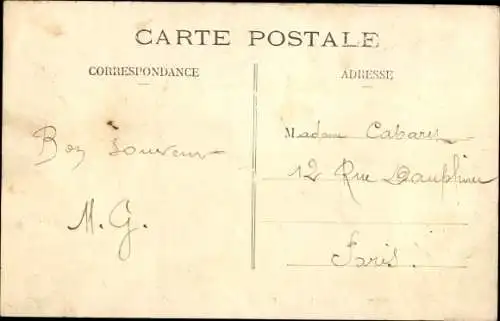 CARTE POSTALE
CORRESPONDANCE
ADRESSE
Bon Souvenir
M. G.
Madame
12 Rue Dauphine
Paris